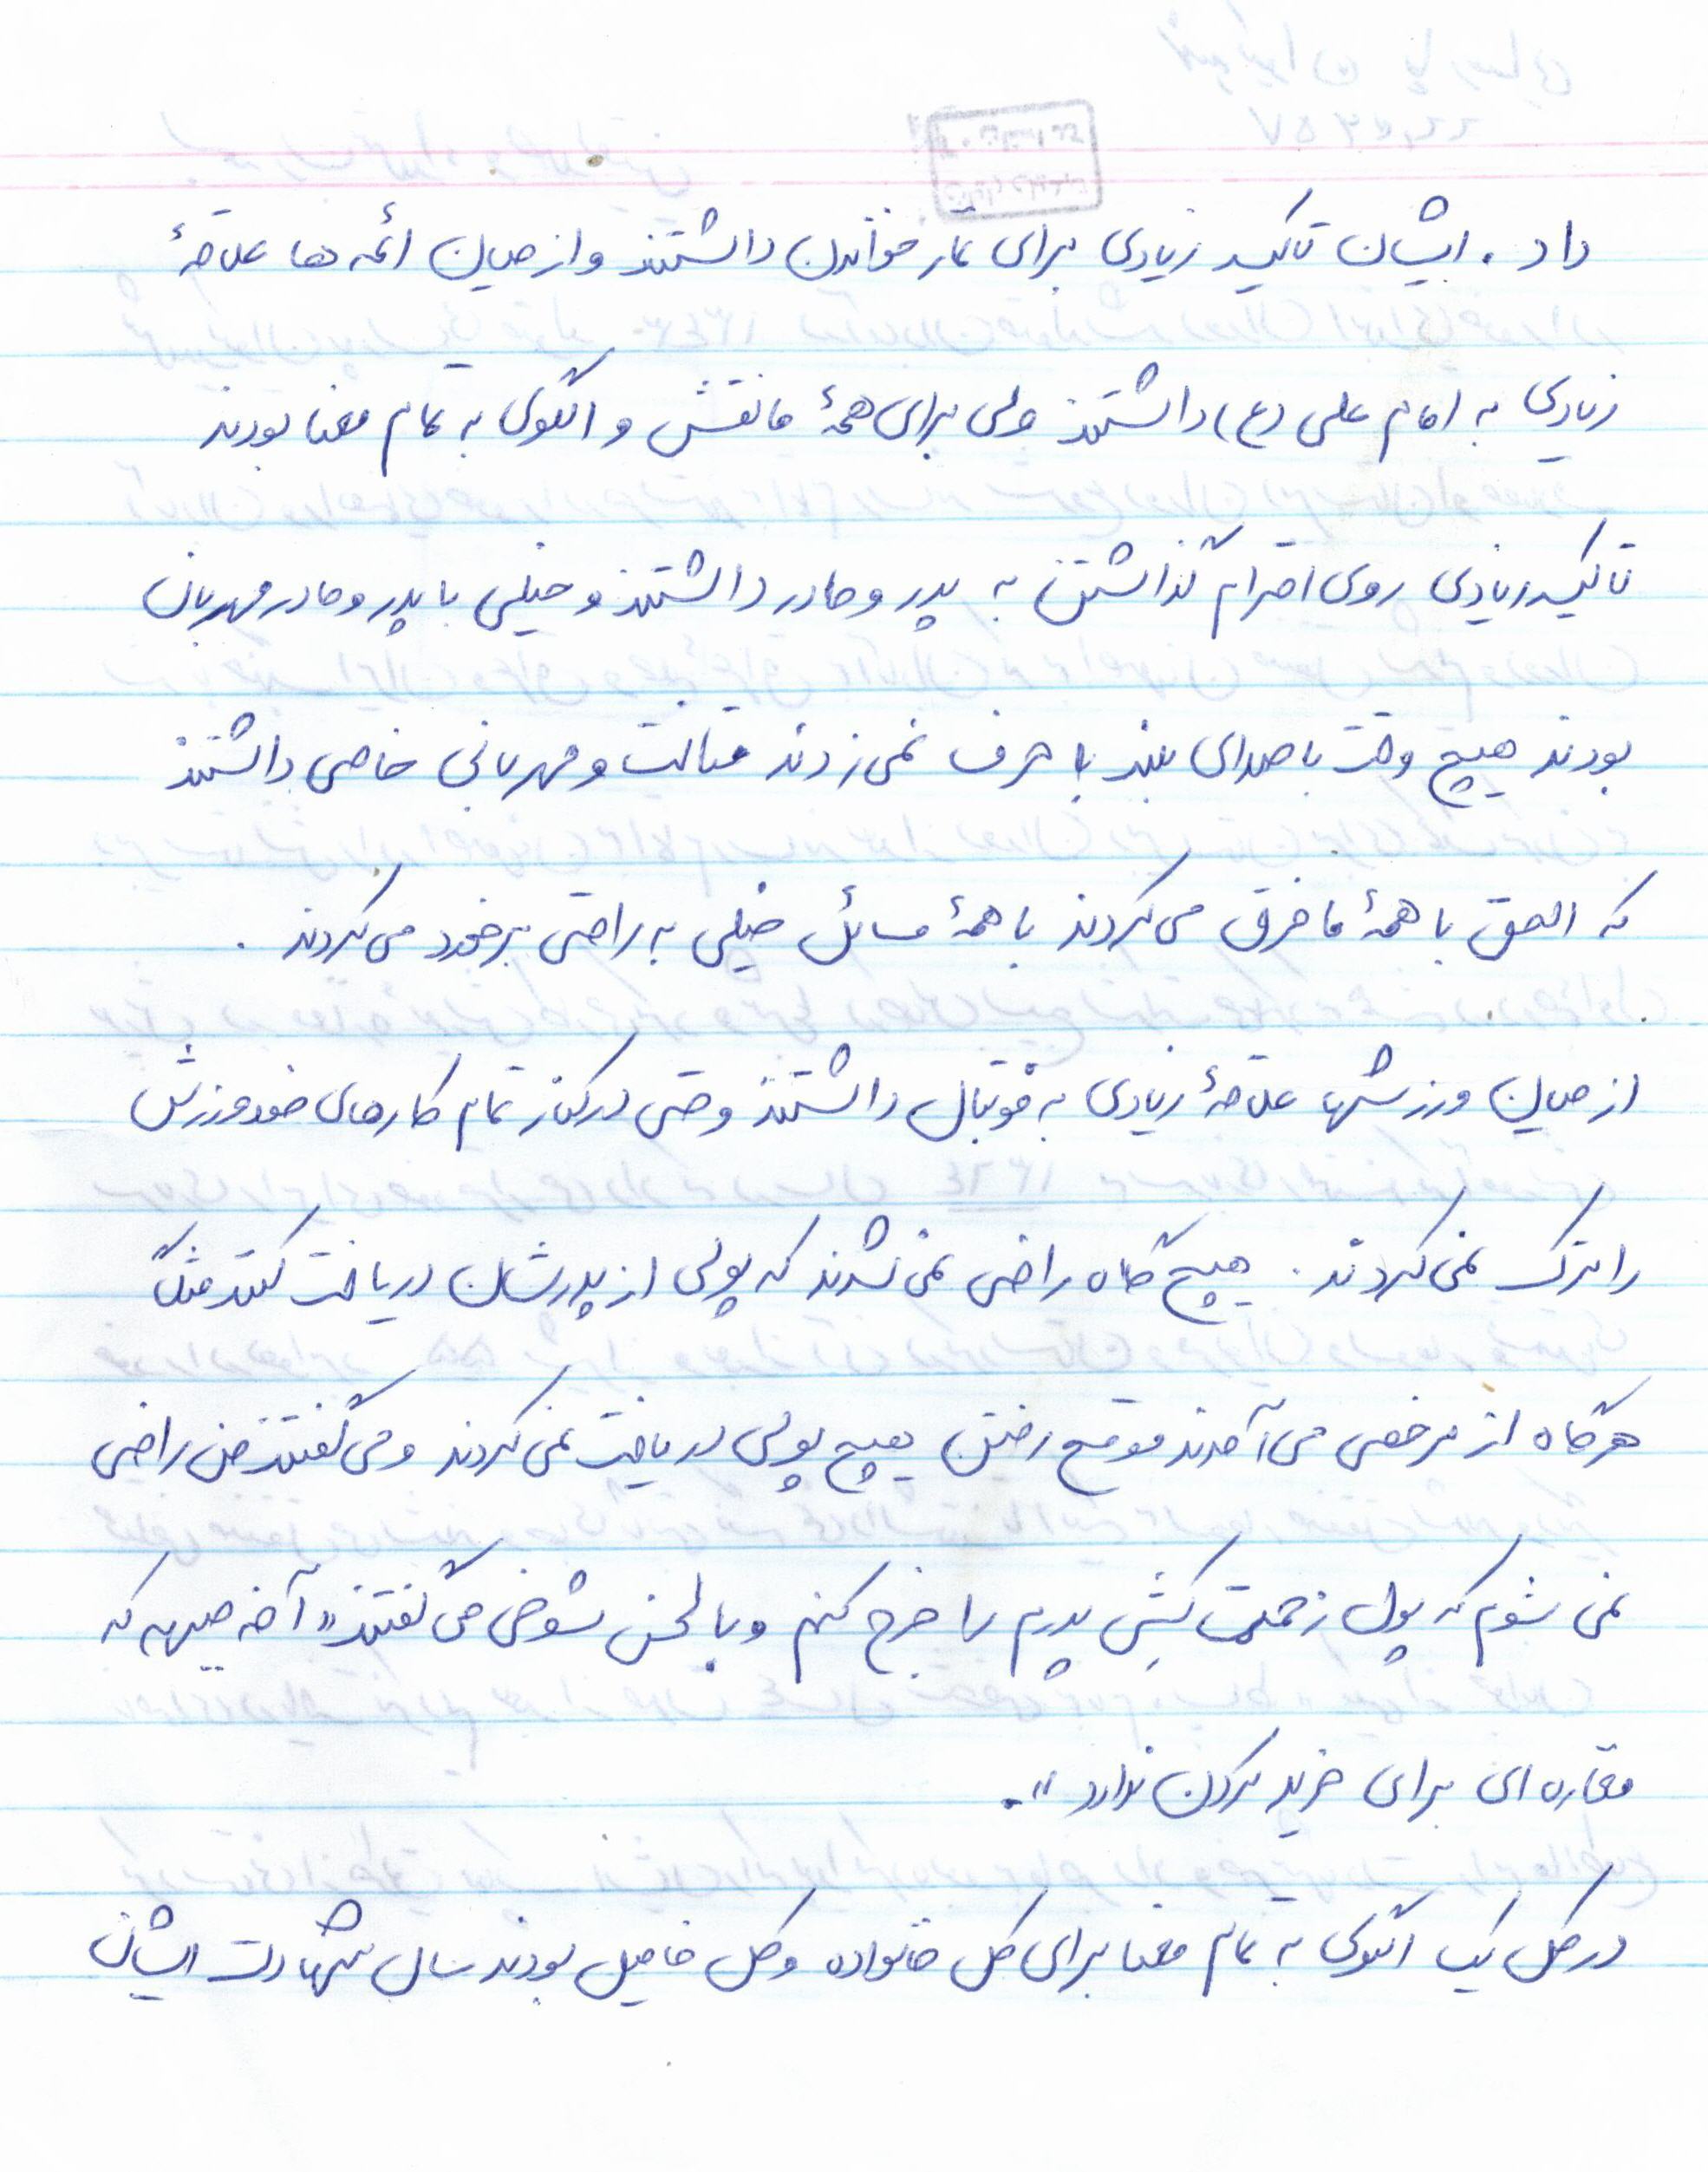 داد . ایشان تاکید زیادی برای نماز خواندن داشتند و از میان ائمه ها علاقهٔ
زیادی به امام علی (ع) داشتند ولی برای همهٔ ما نقش و الگوی به تمام معنا بودند
تاکید زیادی روی احترام گذاشتن به پدر و مادر داشتند و خیلی با پدر و مادر مهربان
بودند هیچ وقت با صدای بلند با حرف نمی زدند متانت و مهربانی خاصی داشتند
که الحق با همهٔ ما فرق می کردند با همهٔ مسائل خیلی به راحتی برخورد می کردند .
از میان ورزشها علاقهٔ زیادی به فوتبال داشتند و حتی در کنار تمام کارهای خود ورزش
را ترک نمی کردند . هیچ گاه راضی نمی شدند که پولی از پدرشان دریافت کنند مثلاً
هرگاه از مرخصی می آمدند موقع رفتن هیچ پولی دریافت نمی کردند و می گفتند من راضی
نمی شوم که پول زحمت کشی پدرم را خرج کنم و با لحن شوخی می گفتند « آخه جبهه که
مغازه ای برای خرید کردن ندارد » .
در کل یک الگوی به تمام معنا برای کل خانواده و کل فامیل بودند سال شهادت ایشان